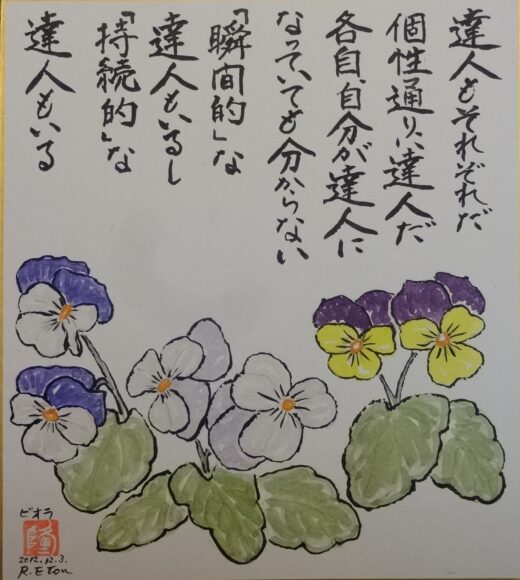 達人もそれぞれだ
個性通りに達人だ
各自、自分が達人に
なっていても分からない
「瞬間的」な
達人もいるし
「持続的」な
達人もいる
ビオラ
隆
2012.12.3.
R.Eton